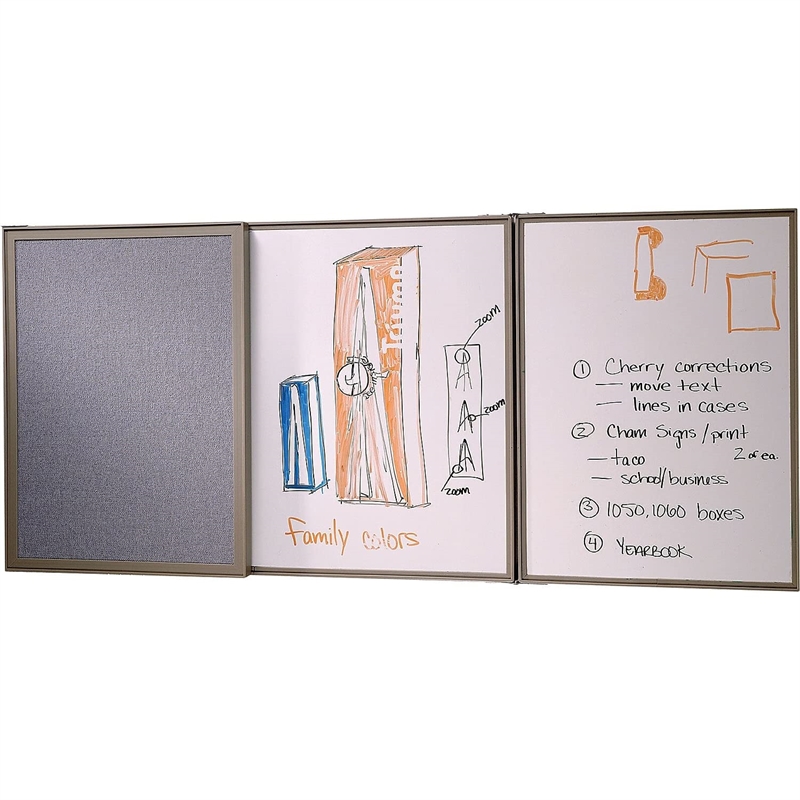 Triumph
zoom
zoom
zoom
Family colors
① Cherry corrections
— move text
— lines in cases
② Cham Signs/print
— taco 2 of ea.
— school/business
③ 1050, 1060 boxes
④ YEARBOOK